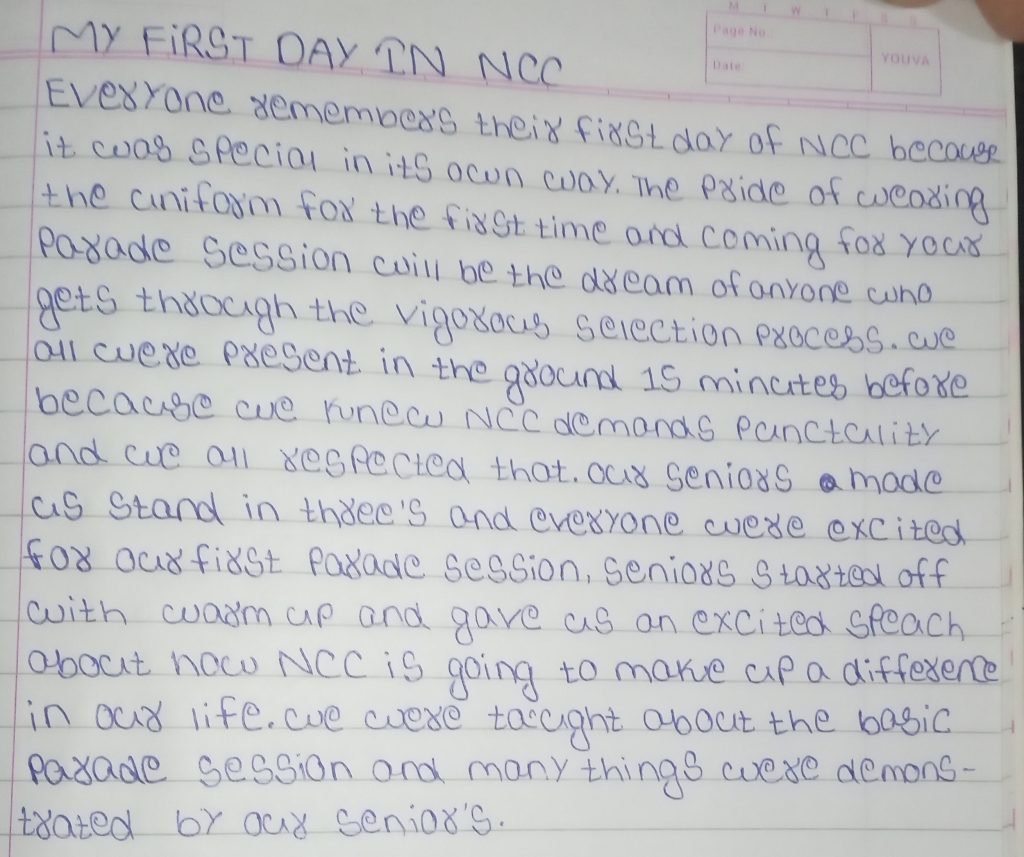 M T W T F S S
Page No.:
Date:
YOUVA
MY FIRST DAY IN NCC
Everyone remembers their first day of NCC because
it was special in its own way. The pride of wearing
the uniform for the first time and coming for your
parade session will be the dream of anyone who
gets through the vigorous selection process. we
all were present in the ground 15 minutes before
because we knew NCC demands punctuality
and we all respected that. our seniors made
us stand in three's and everyone were excited
for our first parade session, seniors started off
with warm up and gave us an excited speach
about how NCC is going to make up a difference
in our life. we were taught about the basic
parade session and many things were demons-
trated by our senior's.